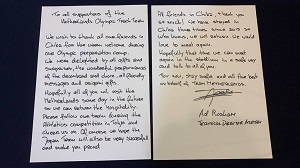 To all supporters of the
Netherlands Olympic Track Team
We wish to thank all our friends in
China for the warm welcome during
our Olympic preparation camp.
We were delighted by all gifts and
surprises, the wonderful performances
of the and choir, all friendly
messages and gifts.
Hopefully all of you will visit the
Netherlands some day in the future
so we can return the hospitality.
Please follow our team during the
Athletics competition in Tokyo and
cheer us on. Of course we hope the
Japan Team will also be very successful
and make you proud.
All friends in China, thank you
so much! We have stayed in
China three times since 2017 so
who knows, we will return. We would
love to meet again.
Hopefully that time we can meet
again in the stadium in a safe way
and talk to all of you.
For now, stay safe and all the best
on behalf of Team Netherlands.
Ad Roskam
Technical Director Athletics